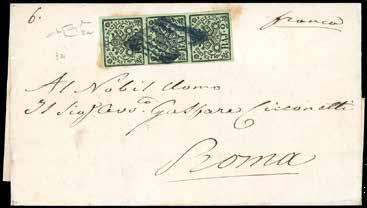 6.
franca
Al Nobil Uomo
Il Sig. Avv.o Gaspare Cicconetti
Roma